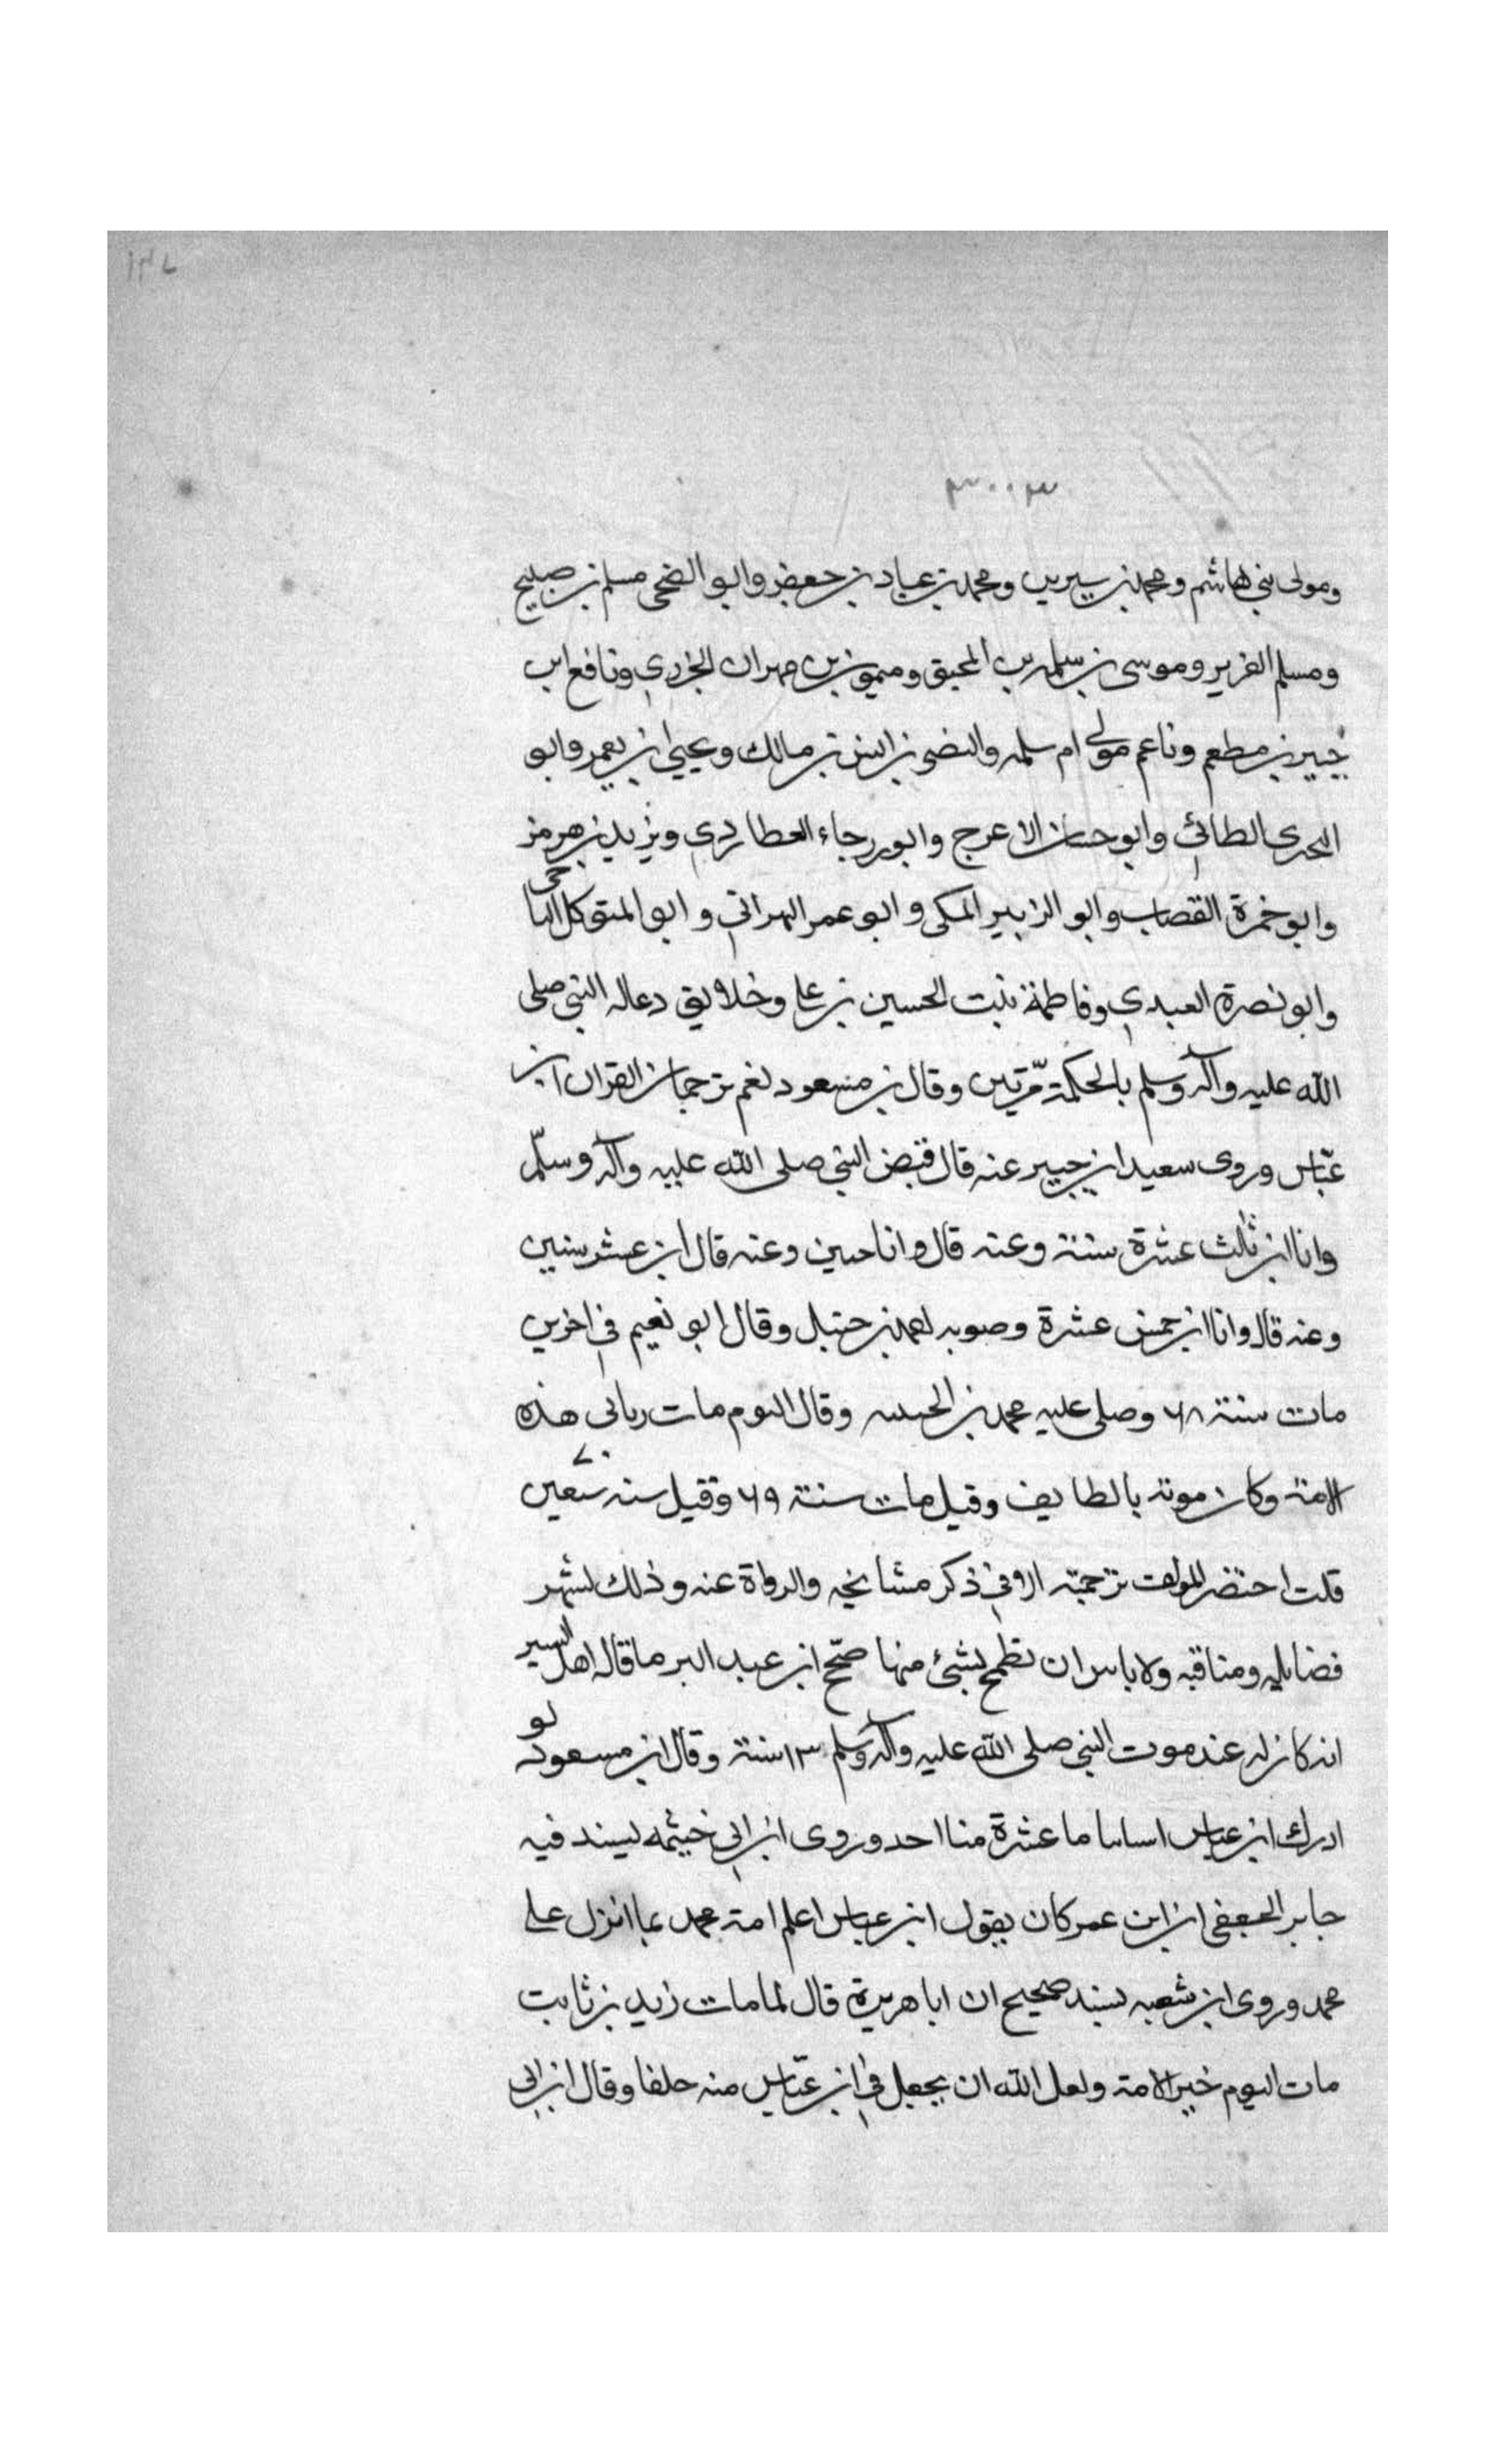 ١٣٧
٣٠٠٣
ومولى بني هاشم ومحمد بن سيرين ومحمد بن عباد بن جعفر وابو الضحى مسلم بن صبيح
ومسلم القرير وموسى بن سلمه بن المحبق وميمون بن مهران الجزري ونافع ابن
جبير بن مطعم وناعم مولى ام سلمه والنضر بن انس بن مالك ويحيى ابن يعمر وابو
البحتري الطائي وابو حسان الاعرج وابو رجاء العطاردي ويزيد بن هرمز
وابو حمزة القصاب وابو الزبير المكي وابو عمر البهراني وابو المتوكل الناجي
وابو نصرة العبدي وفاطمة بنت الحسين بن علي وخلايق دعا له النبي صلى
الله عليه وآله وسلم بالحكمة مرّتين وقال بن مسعود نعم ترجمان القران ابن
عبّاس وروى سعيد ابن جبير عنه قال قبض النبي صلى الله عليه وآله وسلّم
وانا ابن ثلث عشرة سنة وعنه قال وانا حين وعنه قال ابن عشر سنين
وعنه قال وانا ابن خمس عشرة وصوبه احمد بن حنبل وقال ابو نعيم في اخرين
مات سنة ٦٨ وصلى عليه محمد بن الحنفيه وقال اليوم مات رباني هذه
الامة وكان موته بالطايف وقيل مات سنة ٦٩ وقيل سنه سبعين ٧٠
قلت اختصر المولف ترجمته الا في ذكر مشايخه والرواة عنه وذلك لشهر
فضايله ومناقبه ولا باس ان نطمح بشئ منها صحّح ابن عبد البر ما قاله اهل السير
انه كان له عند موت النبي صلى الله عليه وآله وسلم ١٣ سنة وقال ابن مسعود لو
ادرك ابن عباس اسناننا ما عشرة منا احد وروى ابن ابي خيثمه بسند فيه
جابر الجعفي ان ابن عمر كان يقول ابن عباس اعلم امة محمد بما انزل على
محمد وروى ابن شعبه بسند صحيح ان ابا هريرة قال لما مات زيد بن ثابت
مات اليوم خير الامة ولعل الله ان يجعل في ابن عبّاس منه خلفا وقال ابن ابي